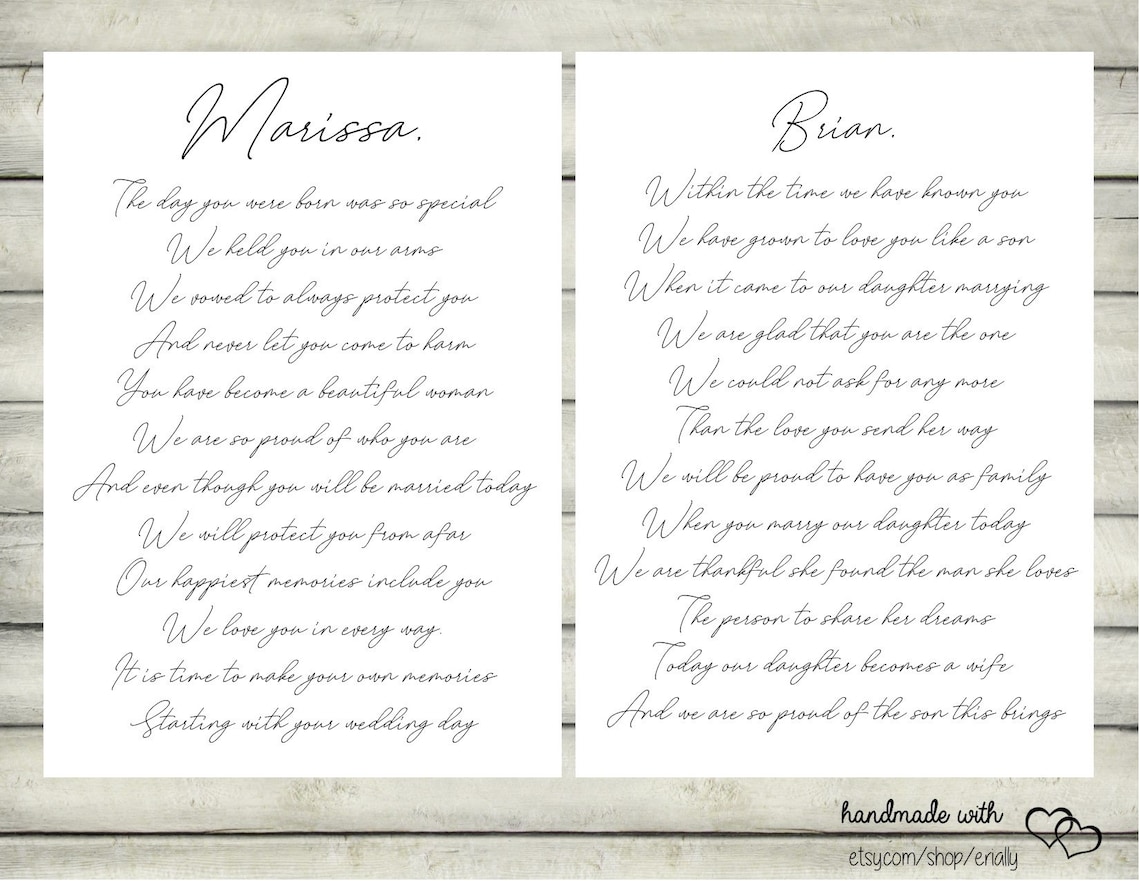 Marissa.
The day you were born was so special
We held you in our arms
We vowed to always protect you
And never let you come to harm
You have become a beautiful woman
We are so proud of who you are
And even though you will be married today
We will protect you from afar
Our happiest memories include you
We love you in every way.
It is time to make your own memories
Starting with your wedding day
Brian.
Within the time we have known you
We have grown to love you like a son
When it came to our daughter marrying
We are glad that you are the one
We could not ask for any more
Than the love you send her way
We will be proud to have you as family
When you marry our daughter today
We are thankful she found the man she loves
The person to share her dreams
Today our daughter becomes a wife
And we are so proud of the son this brings
handmade with
etsy.com/shop/erially